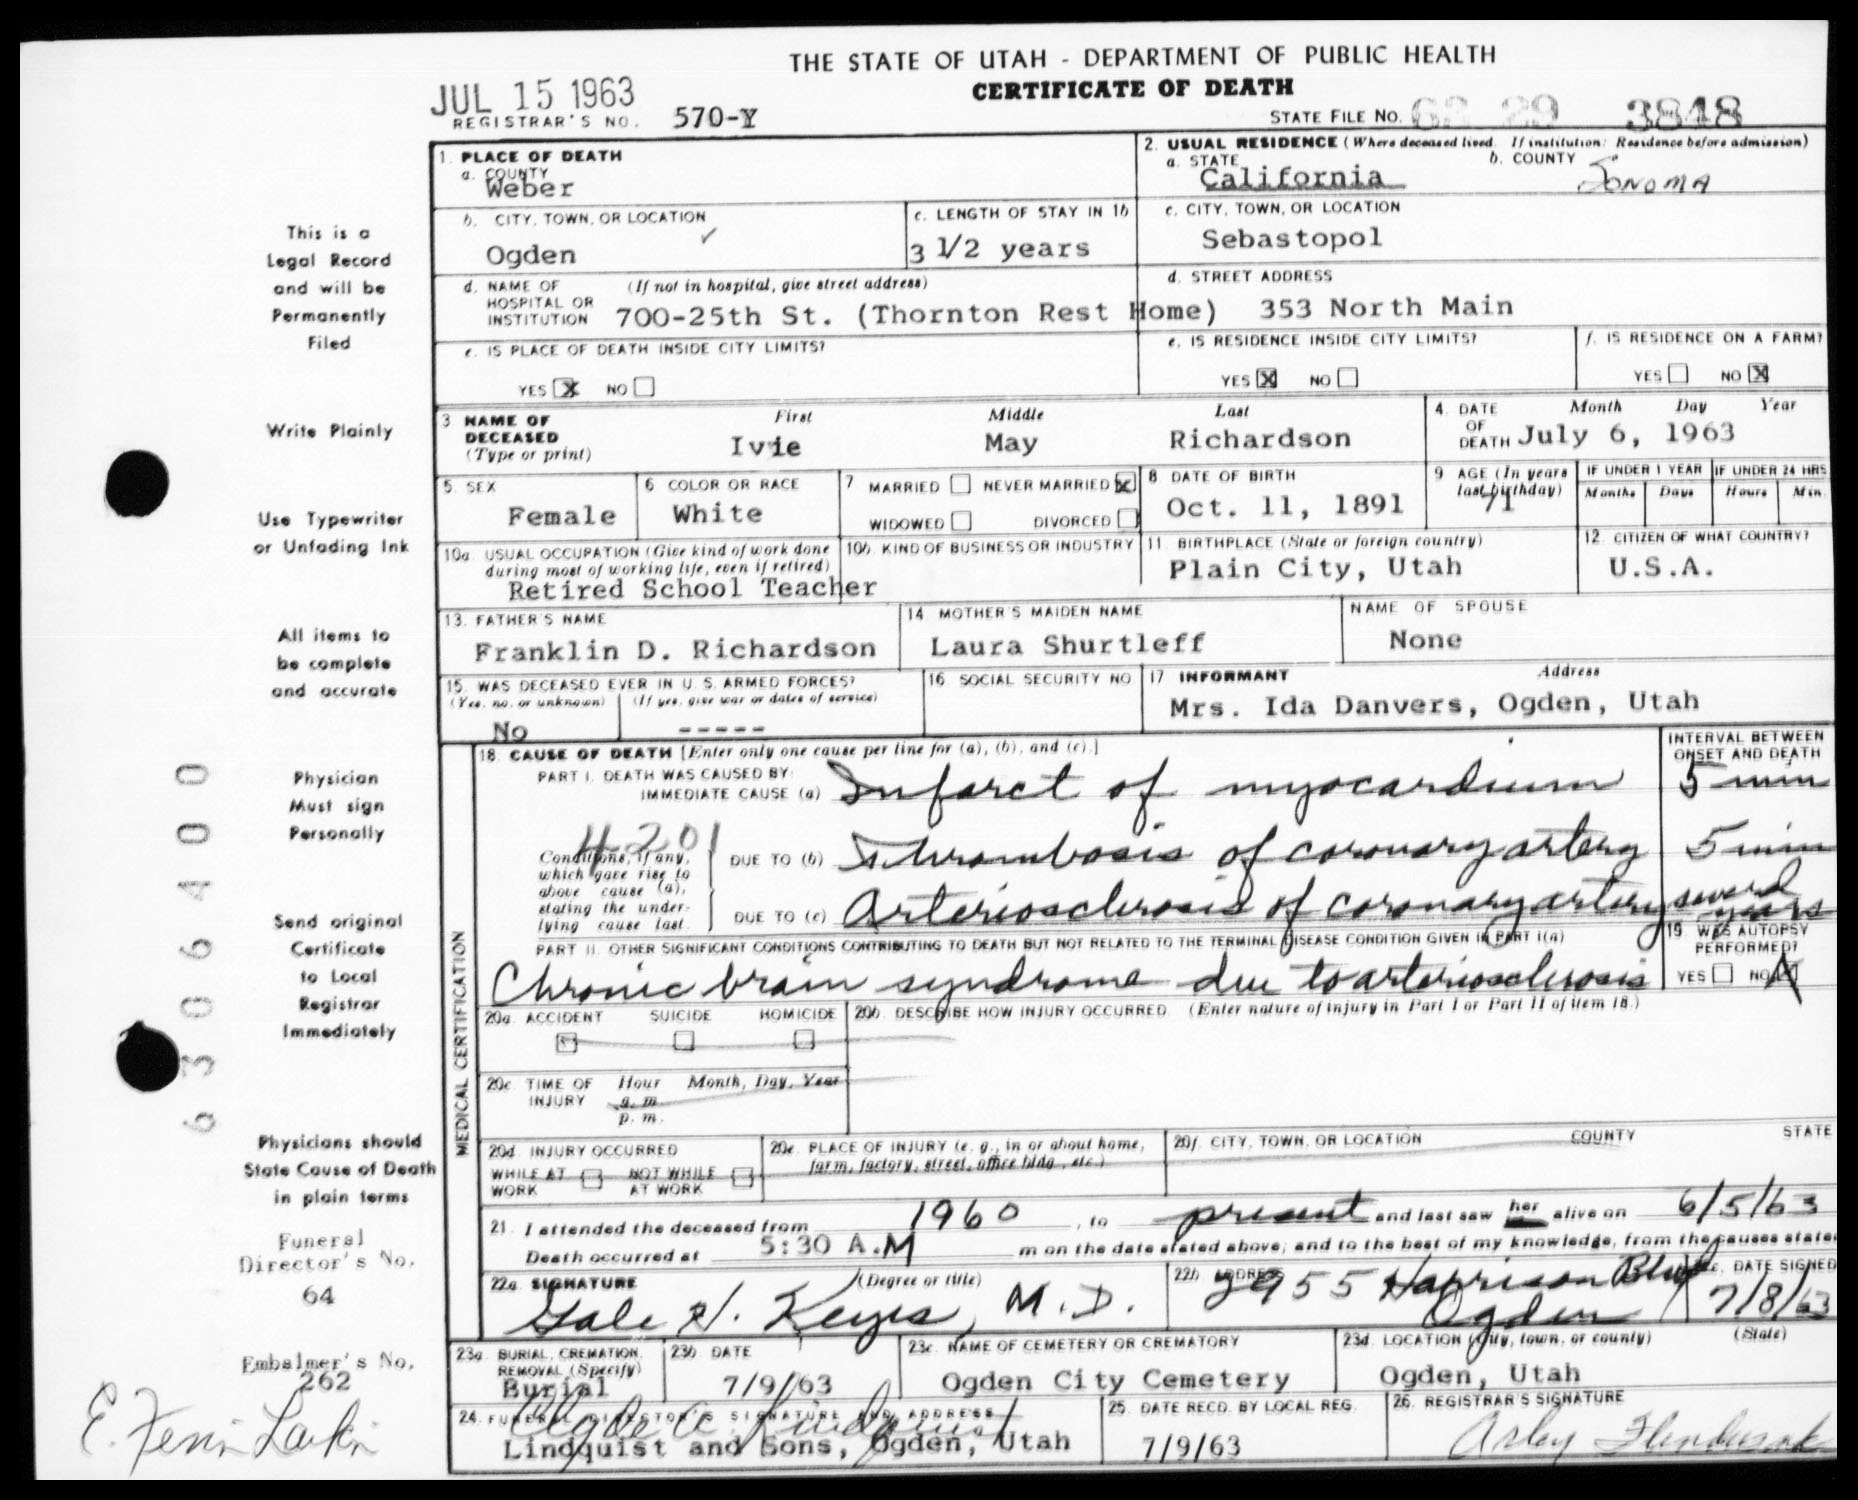 THE STATE OF UTAH - DEPARTMENT OF PUBLIC HEALTH
CERTIFICATE OF DEATH
JUL 15 1963
REGISTRAR'S NO. 570-Y
STATE FILE NO. 63 29 3848
1. PLACE OF DEATH
a. COUNTY
Weber
2. USUAL RESIDENCE (Where deceased lived. If institution: Residence before admission)
a. STATE b. COUNTY
California SONOMA
b. CITY, TOWN, OR LOCATION
Ogden
c. LENGTH OF STAY IN 1b
3 1/2 years
c. CITY, TOWN, OR LOCATION
Sebastopol
d. NAME OF HOSPITAL OR INSTITUTION (If not in hospital, give street address)
700-25th St. (Thornton Rest Home)
d. STREET ADDRESS
353 North Main
e. IS PLACE OF DEATH INSIDE CITY LIMITS?
YES X NO
e. IS RESIDENCE INSIDE CITY LIMITS?
YES X NO
f. IS RESIDENCE ON A FARM?
YES NO X
3 NAME OF DECEASED (Type or print)
First Middle Last
Ivie May Richardson
4. DATE OF DEATH Month Day Year
July 6, 1963
5. SEX
Female
6 COLOR OR RACE
White
7 MARRIED NEVER MARRIED X
WIDOWED DIVORCED
8 DATE OF BIRTH
Oct. 11, 1891
9 AGE (In years last birthday)
71
IF UNDER 1 YEAR IF UNDER 24 HRS
Months Days Hours Min.
10a. USUAL OCCUPATION (Give kind of work done during most of working life, even if retired)
Retired School Teacher
10b. KIND OF BUSINESS OR INDUSTRY
11. BIRTHPLACE (State or foreign country)
Plain City, Utah
12. CITIZEN OF WHAT COUNTRY?
U.S.A.
13. FATHER'S NAME
Franklin D. Richardson
14 MOTHER'S MAIDEN NAME
Laura Shurtleff
NAME OF SPOUSE
None
15. WAS DECEASED EVER IN U. S. ARMED FORCES?
(Yes, no, or unknown) (If yes, give war or dates of service)
No -----
16 SOCIAL SECURITY NO
17 INFORMANT Address
Mrs. Ida Danvers, Ogden, Utah
MEDICAL CERTIFICATION
18. CAUSE OF DEATH [Enter only one cause per line for (a), (b), and (c).]
INTERVAL BETWEEN ONSET AND DEATH
PART I. DEATH WAS CAUSED BY:
IMMEDIATE CAUSE (a) Infarct of myocardium 5 min
4201
Conditions, if any, which gave rise to above cause (a), stating the underlying cause last.
DUE TO (b) Thrombosis of coronary artery 5 min
DUE TO (c) Arteriosclerosis of coronary artery several years
PART II. OTHER SIGNIFICANT CONDITIONS CONTRIBUTING TO DEATH BUT NOT RELATED TO THE TERMINAL DISEASE CONDITION GIVEN IN PART I(a)
Chronic brain syndrome due to arteriosclerosis
19 WAS AUTOPSY PERFORMED?
YES NO X
20a. ACCIDENT SUICIDE HOMICIDE
20b. DESCRIBE HOW INJURY OCCURRED. (Enter nature of injury in Part I or Part II of item 18.)
20c TIME OF INJURY Hour Month, Day, Year
a. m.
p. m.
20d. INJURY OCCURRED
WHILE AT WORK NOT WHILE AT WORK
20e. PLACE OF INJURY (e. g., in or about home, farm, factory, street, office bldg., etc.)
20f. CITY, TOWN, OR LOCATION COUNTY STATE
21. I attended the deceased from 1960, to present and last saw her alive on 6/5/63
Death occurred at 5:30 A.M m on the date stated above; and to the best of my knowledge, from the causes stated
22a. SIGNATURE (Degree or title)
Gale H. Keyes, M.D.
22b. ADDRESS
3955 Harrison Blvd
Ogden
22c. DATE SIGNED
7/8/63
23a. BURIAL, CREMATION, REMOVAL (Specify)
Burial
23b DATE
7/9/63
23c. NAME OF CEMETERY OR CREMATORY
Ogden City Cemetery
23d. LOCATION (City, town, or county) (State)
Ogden, Utah
24. FUNERAL DIRECTOR'S SIGNATURE AND ADDRESS
Clyde A. Lindquist
Lindquist and Sons, Ogden, Utah
25. DATE RECD. BY LOCAL REG.
7/9/63
26. REGISTRAR'S SIGNATURE
This is a
Legal Record
and will be
Permanently
Filed
Write Plainly
Use Typewriter
or Unfading Ink
All items to
be complete
and accurate
Physician
Must sign
Personally
Send original
Certificate
to Local
Registrar
Immediately
Physicians should
State Cause of Death
in plain terms
6 3 0 6 4 0 0
Funeral
Director's No.
64
Embalmer's No.
262
E. Ferrin Larkin